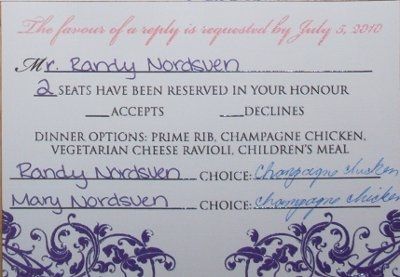 The favour of a reply is requested by July 5, 2010
Mr. Randy Nordsven
2 SEATS HAVE BEEN RESERVED IN YOUR HONOUR
__ACCEPTS __DECLINES
DINNER OPTIONS: PRIME RIB, CHAMPAGNE CHICKEN,
VEGETARIAN CHEESE RAVIOLI, CHILDREN'S MEAL
Randy Nordsven CHOICE: Champagne chicken
Mary Nordsven CHOICE: champagne chicken